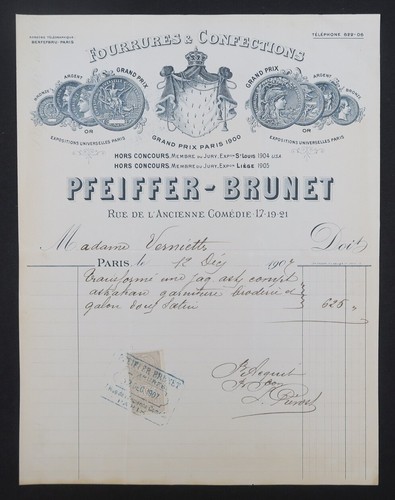 ADRESSE TÉLÉGRAPHIQUE
TÉLÉPHONE 822-06
FOURRURES & CONFECTIONS
BRONZE
ARGENT
GRAND PRIX
GRAND PRIX
ARGENT
BRONZE
OR
OR
EXPOSITIONS UNIVERSELLES PARIS
GRAND PRIX PARIS 1900
EXPOSITIONS UNIVERSELLES PARIS
HORS CONCOURS, MEMBRE DU JURY, EXPON ST LOUIS 1904 USA
HORS CONCOURS, MEMBRE DU JURY, EXPON LIÈGE 1905
PFEIFFER-BRUNET
RUE DE L'ANCIENNE COMÉDIE 17-19-21
Madame Doit
PARIS le 12 Déc 1907
transformé une jaq astr
astrakan garniture broderie et
galon 625 "
PFEIFFER BRUNET
1907
Pr Acquit